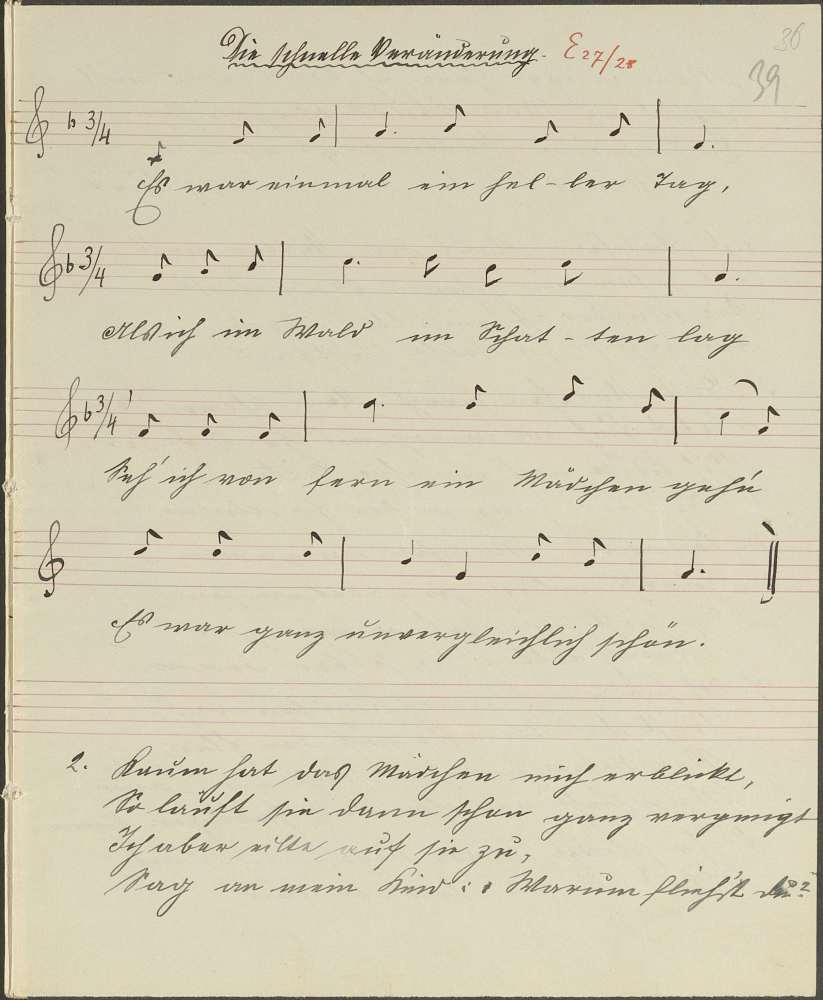 Die schnelle Veränderung. E 27/28
36
39
3/4
Es war einmal ein hel-ler Tag,
3/4
Als ich im Wald im Schat-ten lag
3/4
Seh' ich von fern ein Mädchen geh'n
Es war ganz unvergleichlich schön.
2. Kaum hat das Mädchen mich erblickt,
So läuft sie dann schon ganz vergnügt
Ich aber eilte auf sie zu,
Sag an mein Kind: Warum fliehst du?